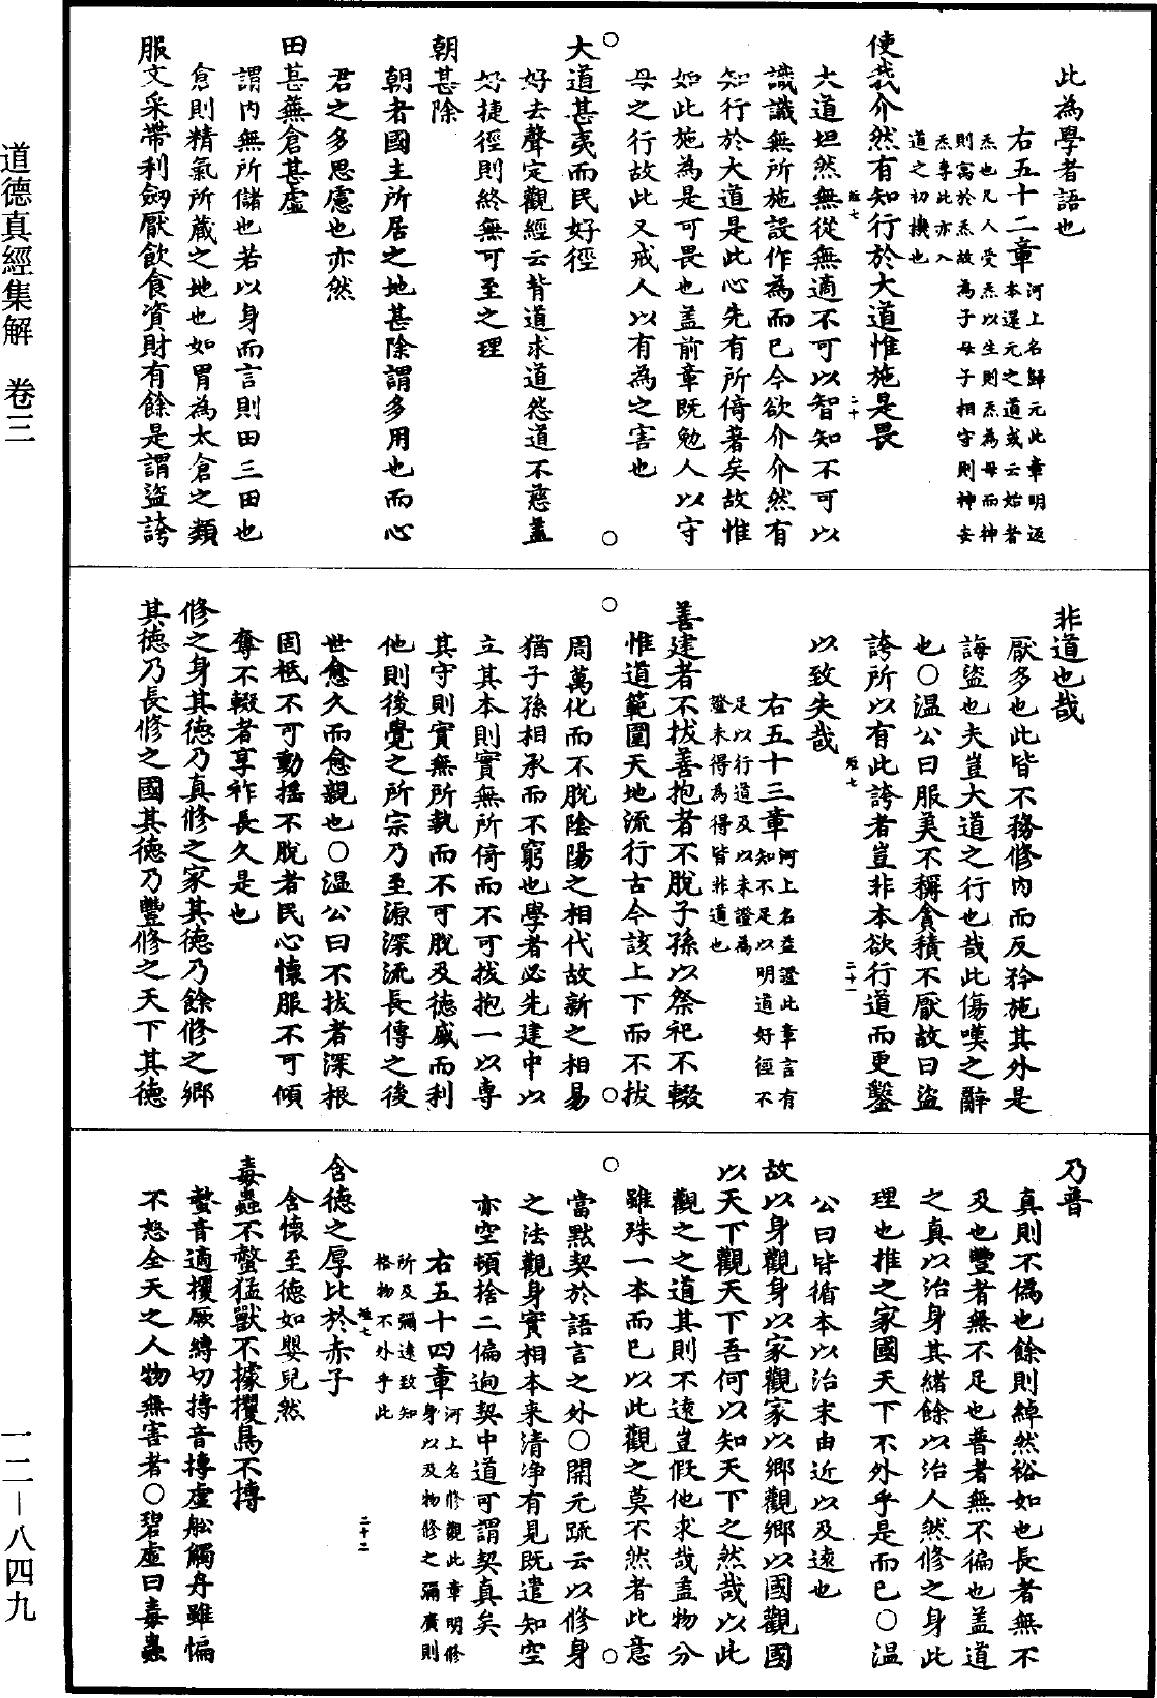 道德真經集解　卷三
一二—八四九
此為學者語也
右五十二章河上名歸元此章明返
本還元之道或云始者
炁也凡人受炁以生則炁為母而神
則寓於炁故為子母子相守則神安
炁專此亦入
道之初機也
使我介然有知行於大道惟施是畏
大道坦然無從無適不可以智知不可以
識識無所施設作為而已今欲介介然有
知行於大道是此心先有所倚著矣故惟
如此施為是可畏也蓋前章既勉人以守
母之行故此又戒人以有為之害也
大道甚夷而民好徑
好去聲定觀經云背道求道怨道不慈蓋
好捷徑則終無可至之理
朝甚除
朝者國主所居之地甚除謂多用也而心
君之多思慮也亦然
田甚蕪倉甚虛
謂內無所儲也若以身而言則田三田也
倉則精氣所藏之地也如胃為太倉之類
服文采帶利劒厭飲食資財有餘是謂盜誇
非道也哉
厭多也此皆不務修內而反矜施其外是
誨盜也夫豈大道之行也哉此傷嘆之辭
也○溫公曰服美不稱貪積不厭故曰盜
誇所以有此誇者豈非本欲行道而更鑿
以致失哉
右五十三章河上名益證此章言有
知不足以明道好徑不
足以行道及以未證為
證未得為得皆非道也
善建者不拔善抱者不脫子孫以祭祀不輟
惟道範圍天地流行古今該上下而不拔
周萬化而不脫陰陽之相代故新之相易
猶子孫相承而不窮也學者必先建中以
立其本則實無所倚而不可拔抱一以專
其守則實無所執而不可脫及德盛而利
他則後覺之所宗乃至源深流長傳之後
世愈久而愈親也○溫公曰不拔者深根
固柢不可動搖不脫者民心懷服不可傾
奪不輟者享祚長久是也
修之身其德乃真修之家其德乃餘修之鄉
其德乃長修之國其德乃豐修之天下其德
乃普
真則不偽也餘則綽然裕如也長者無不
及也豐者無不足也普者無不徧也蓋道
之真以治身其緒餘以治人然修之身此
理也推之家國天下不外乎是而已○溫
公曰皆循本以治末由近以及遠也
故以身觀身以家觀家以鄉觀鄉以國觀國
以天下觀天下吾何以知天下之然哉以此
觀之之道其則不遠豈假他求哉蓋物分
雖殊一本而已以此觀之莫不然者此意
當默契於語言之外○開元疏云以修身
之法觀身實相本來清淨有見既遣知空
亦空頓捨二偏迥契中道可謂契真矣
右五十四章河上名修觀此章明修
身以及物修之彌廣則
所及彌遠致知
格物不外乎此
含德之厚比於赤子
含懷至德如嬰兒然
毒蟲不螫猛獸不據攫鳥不搏
螫音適攫厥縛切搏音博虛舩觸舟雖惼
不怒全天之人物無害者○碧虛曰毒蟲